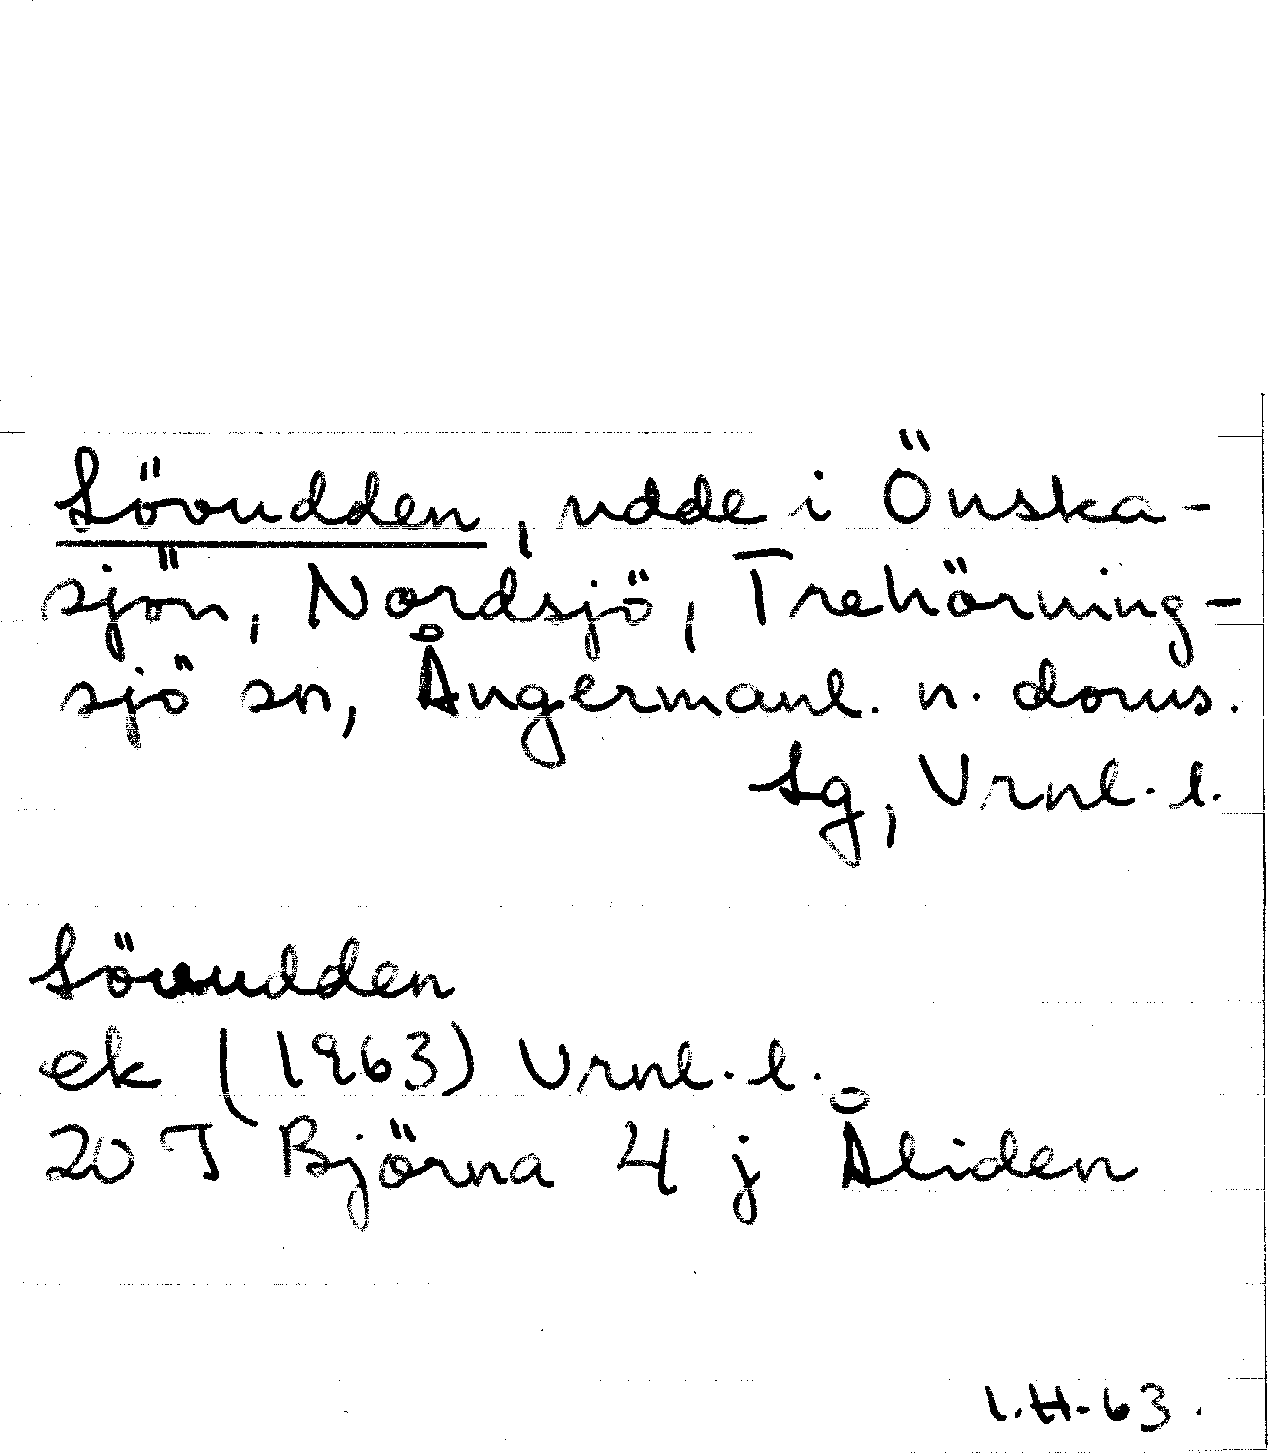 Sövudden, udde i Önska-
sjön, Nordsjö, Trehörning-
sjö sn, Ångermanl. n. doms.
Sg, Vrnl. l.
Sövudden
ek (1963) Vrnl. l.
20 J Björna 4 j Åliden
I.H-63.